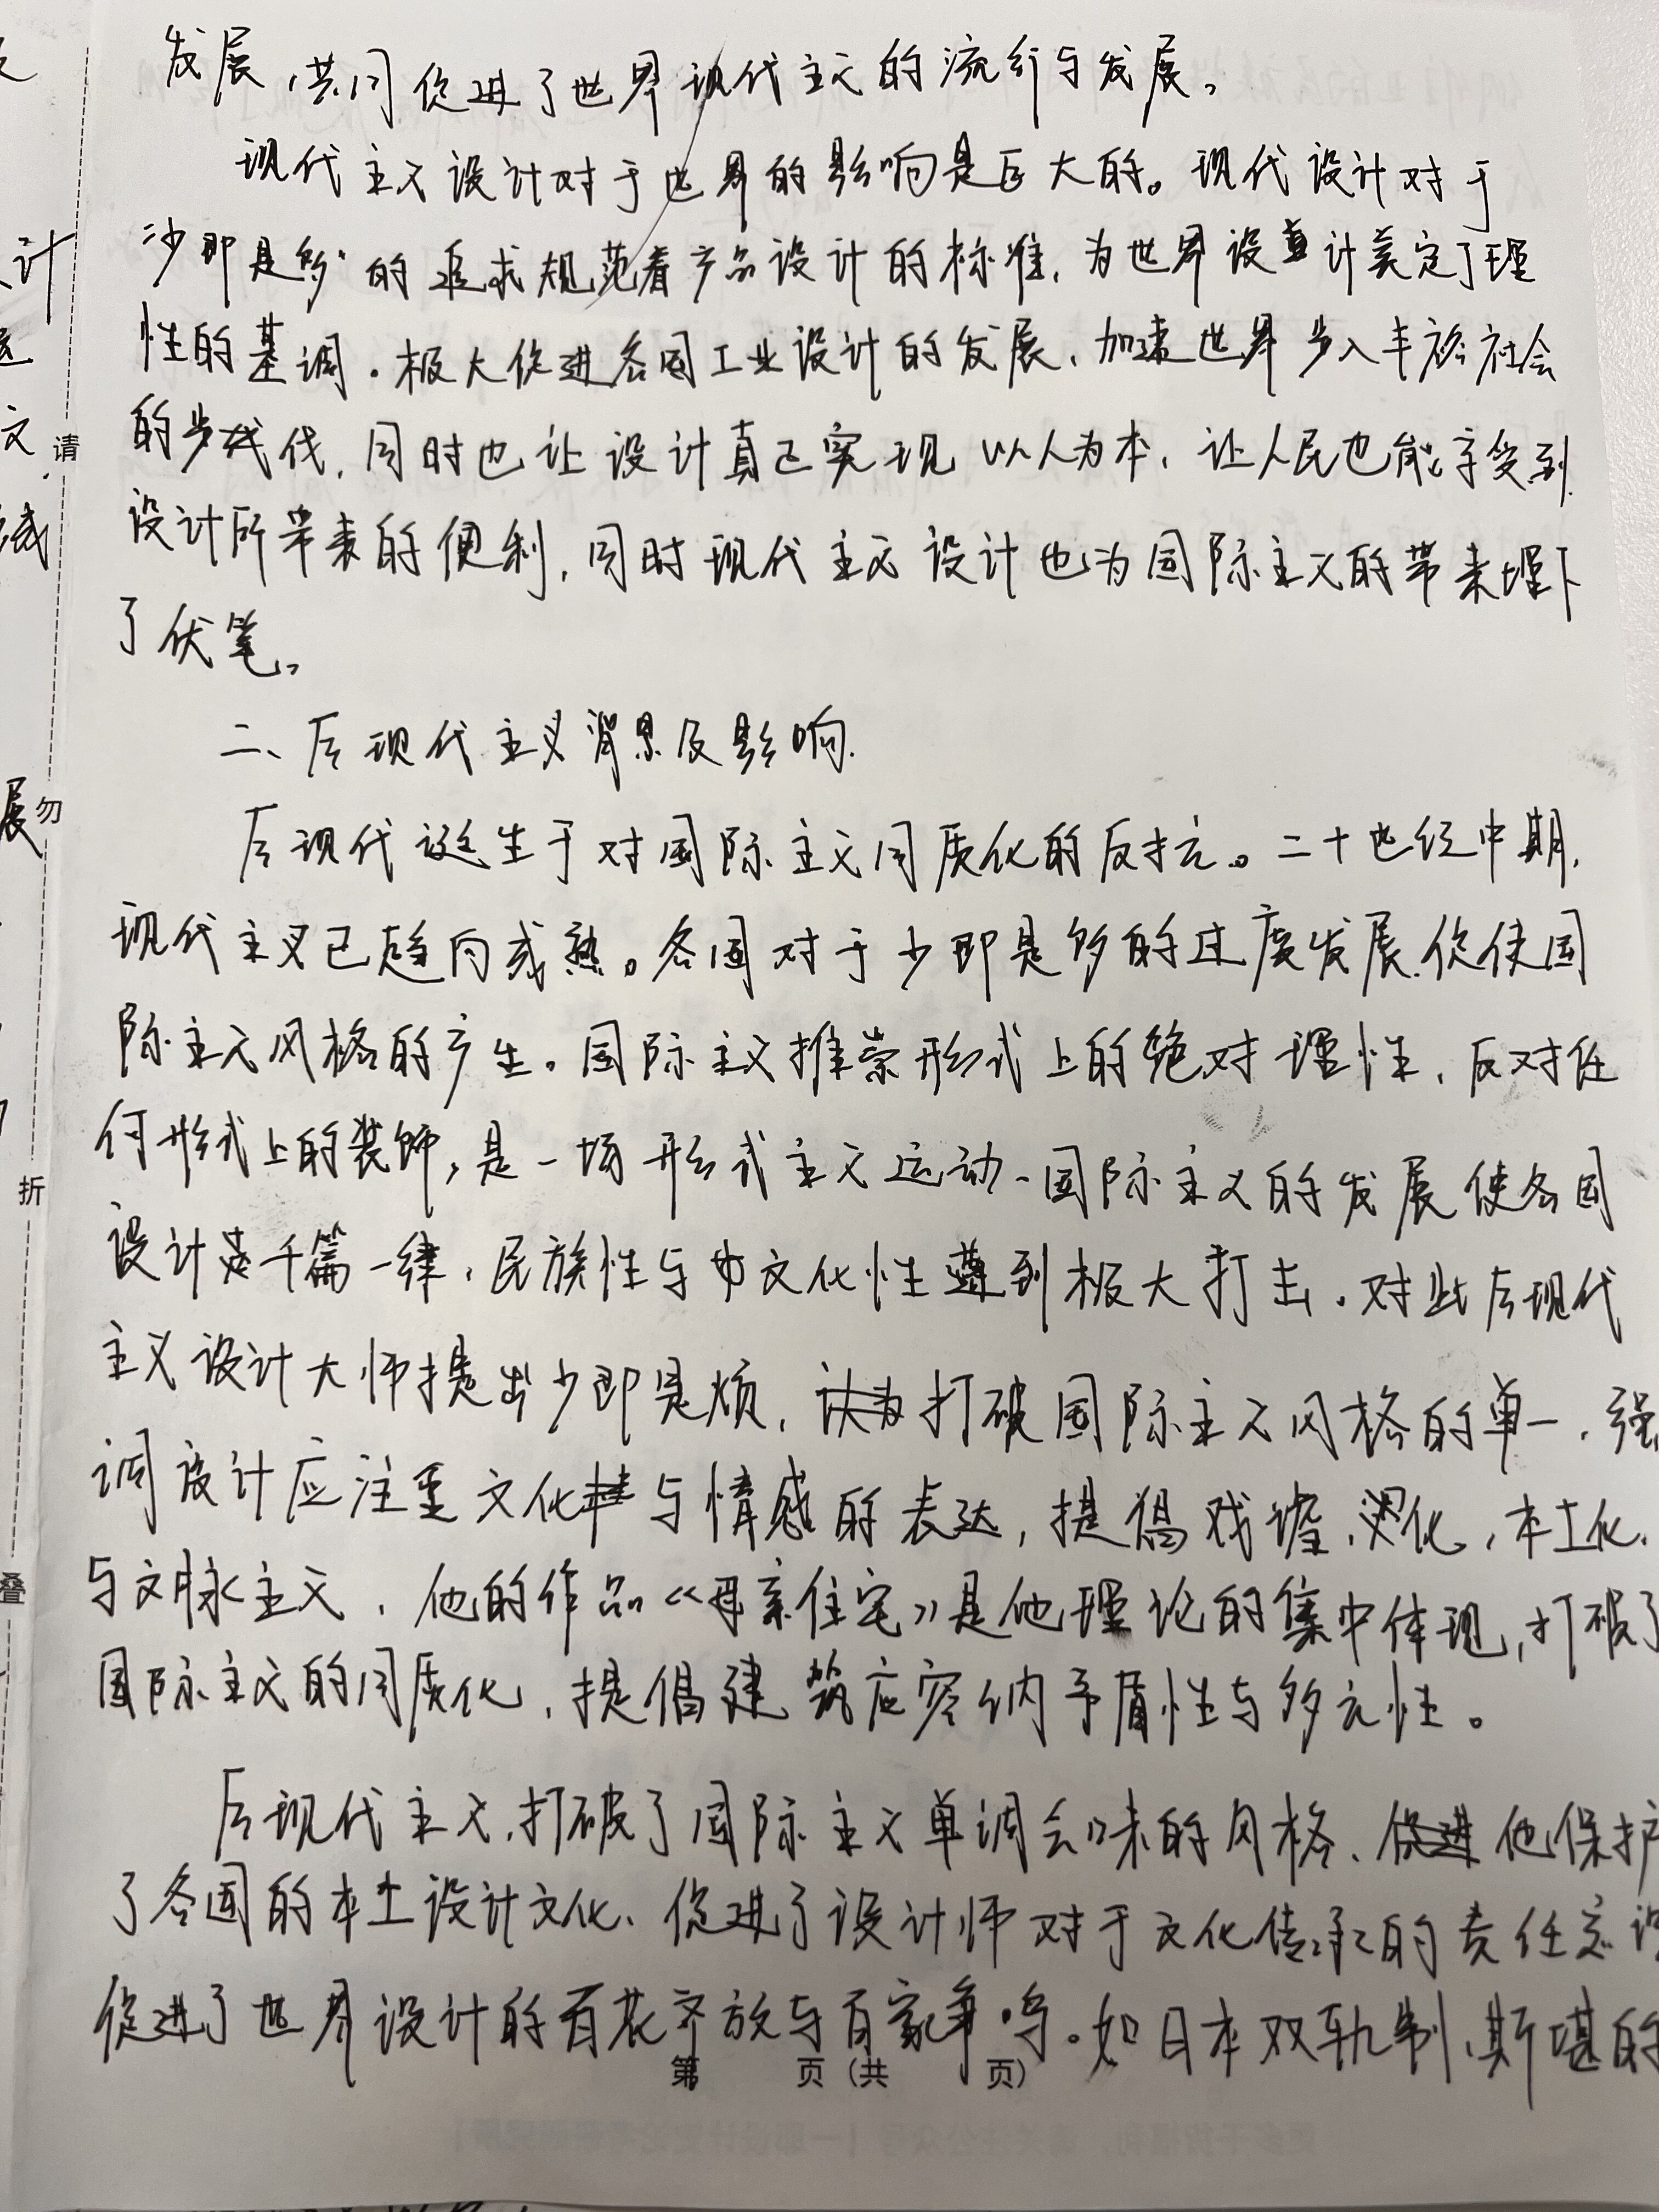 发展，共同促进了世界现代主义的流行与发展。
现代主义设计对于世界的影响是巨大的。现代设计对于
"少即是多"的追求规范着产品设计的标准，为世界设计奠定了理
性的基调。极大促进各国工业设计的发展、加速世界步入丰裕社会
的步伐，同时也让设计真正实现以人为本，让人民也能享受到
设计所带来的便利，同时现代主义设计也为国际主义的带来埋下
了伏笔。
二、后现代主义背景及影响.
后现代诞生于对国际主义同质化的反抗。二十世纪中期，
现代主义已趋向成熟。各国对于少即是多的过度发展.促使国
际主义风格的产生。国际主义推崇形式上的绝对理性，反对任
何形式上的装饰，是一场形式主义运动、国际主义的发展使各国
设计千篇一律，民族性与文化性遭到极大打击。对此后现代
主义设计大师提出少即是烦，打破国际主义风格的单一，强
调设计应注重文化与情感的表达，提倡戏谑、汉化，本土化，
与文脉主义，他的作品《母亲住宅》是他理论的集中体现，打破了
国际主义的同质化，提倡建筑应容纳矛盾性与多元性。
后现代主义，打破了国际主义单调乏味的风格、他保护
了各国的本土设计文化、促进了设计师对于文化传承的责任意识
促进了世界设计的百花齐放与百家争鸣。如日本双轨制、斯堪的
第 页（共 页）
请
勿
折
叠
计
文
展